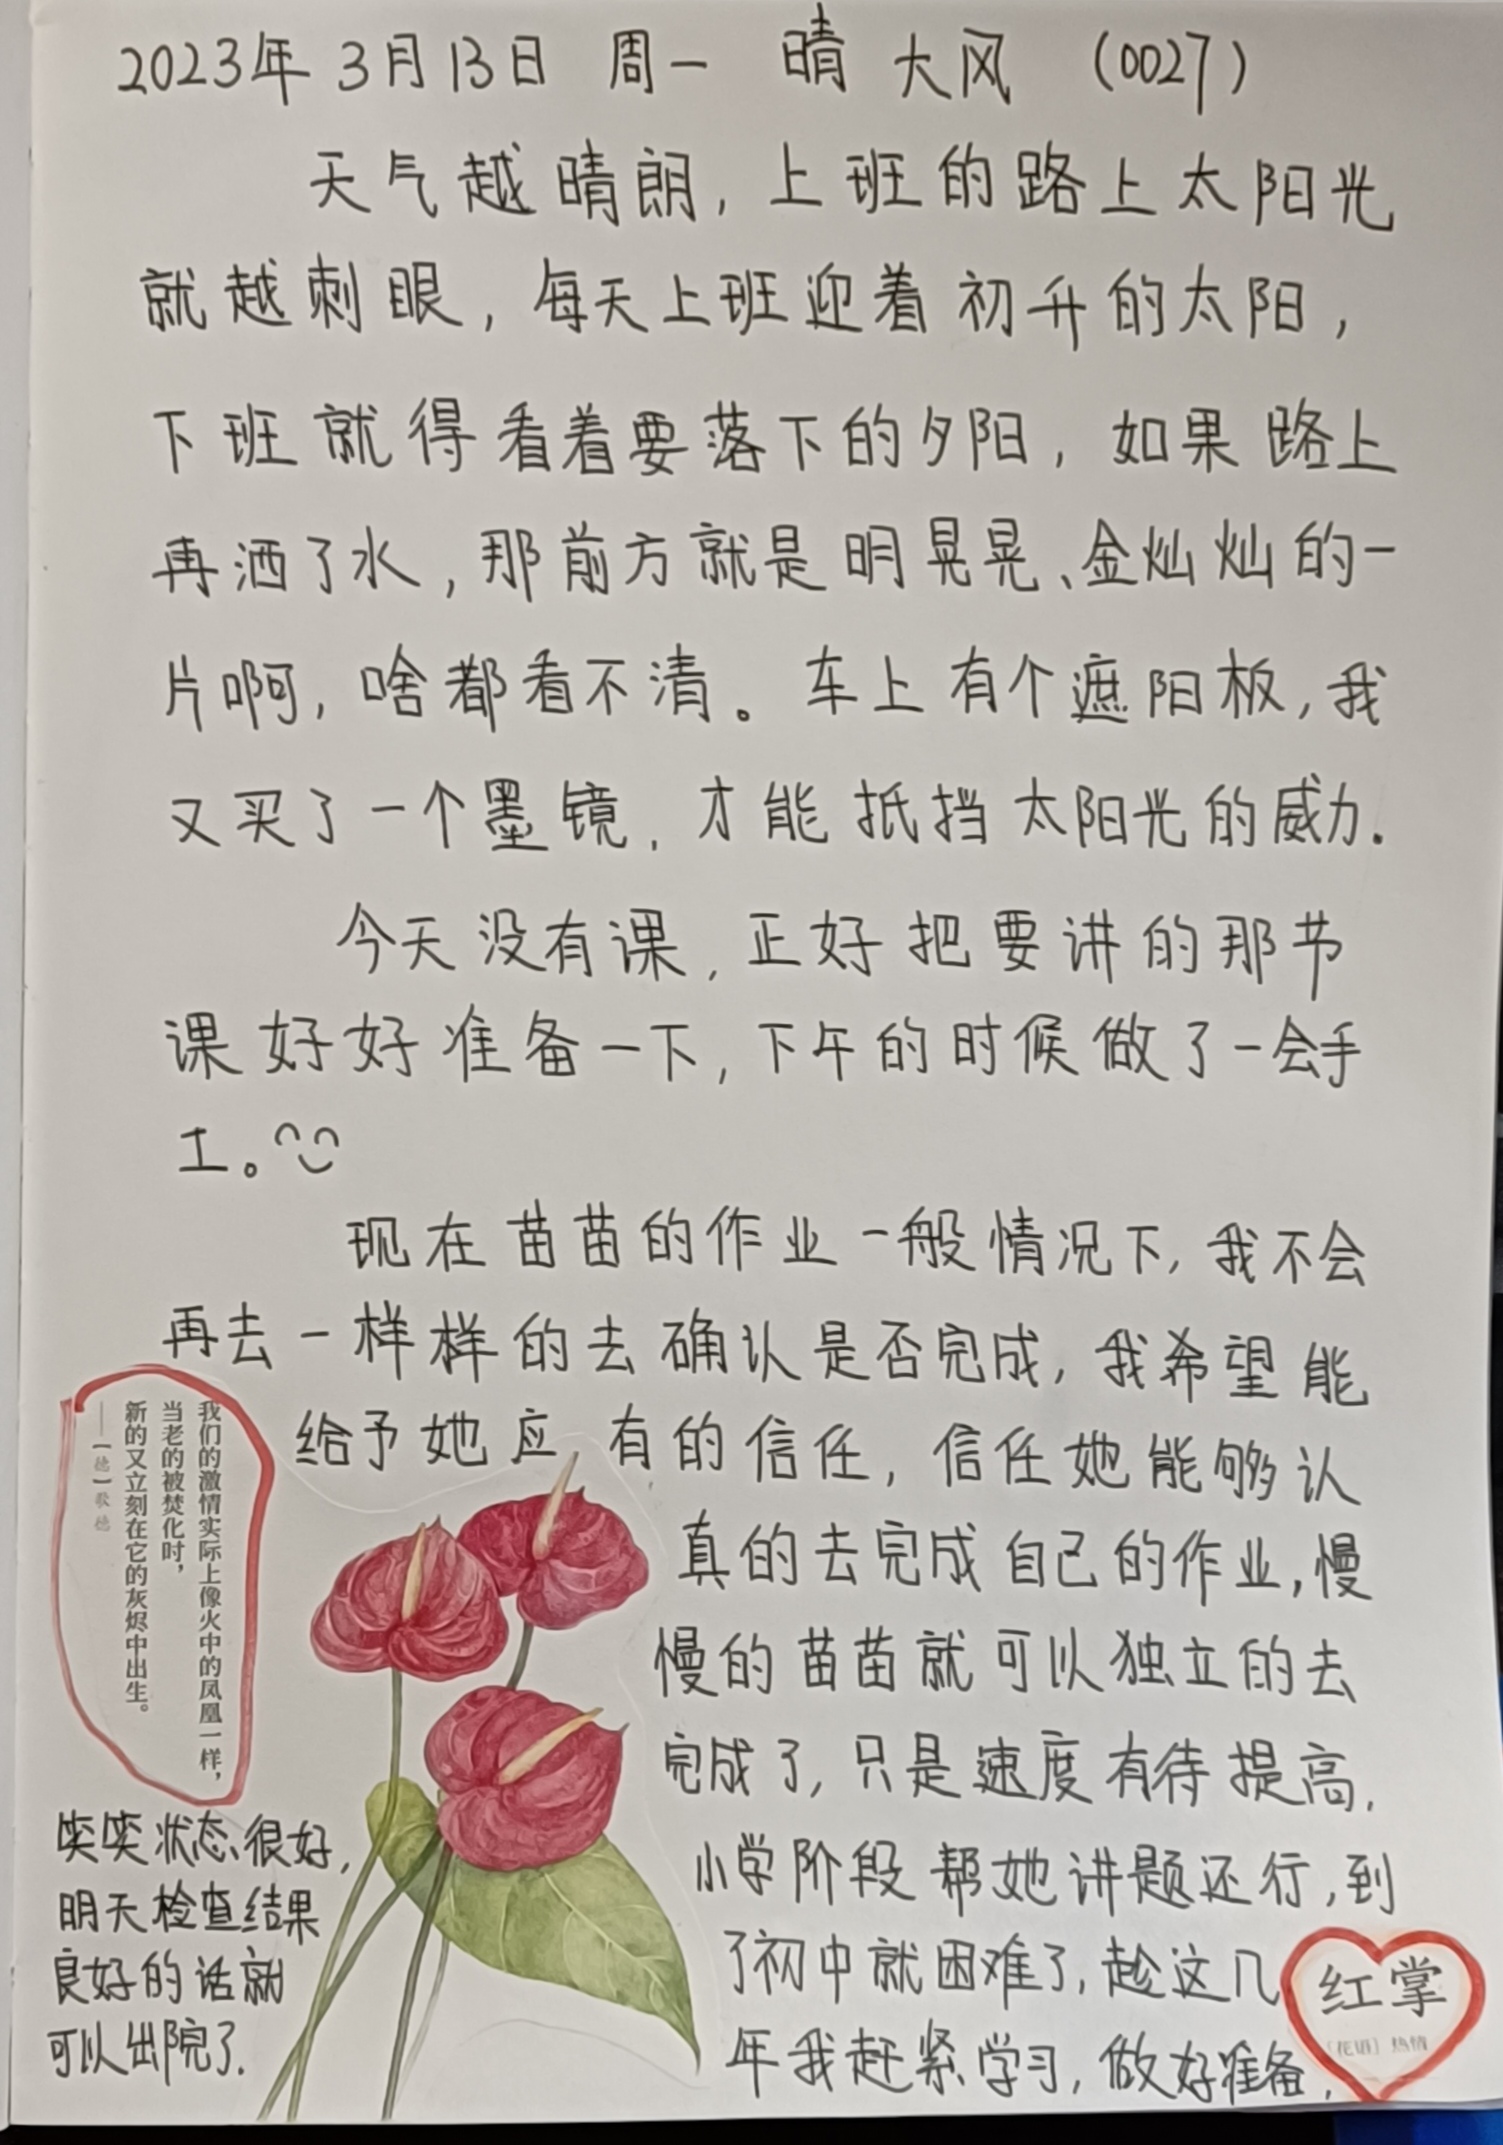 2023年 3月13日 周一 晴 大风 (0027)
天气越晴朗,上班的路上太阳光
就越刺眼,每天上班迎着初升的太阳,
下班就得看着要落下的夕阳,如果路上
再洒了水,那前方就是明晃晃、金灿灿的一
片啊,啥都看不清。车上有个遮阳板,我
又买了一个墨镜,才能抵挡太阳光的威力.
今天没有课,正好把要讲的那节
课好好准备一下,下午的时候做了一会手
工。
现在苗苗的作业一般情况下,我不会
再去一样样的去确认是否完成,我希望能
给予她应有的信任,信任她能够认
真的去完成自己的作业,慢
慢的苗苗就可以独立的去
完成了,只是速度有待提高,
小学阶段帮她讲题还行,到
了初中就困难了,趁这几
年我赶紧学习,做好准备,
我们的激情实际上像火中的凤凰一样,
当老的被焚化时,
新的又立刻在它的灰烬中出生。
——[德]歌德
笑笑状态很好,
明天检查结果
良好的话就
可以出院了.
红掌
[花语] 热情